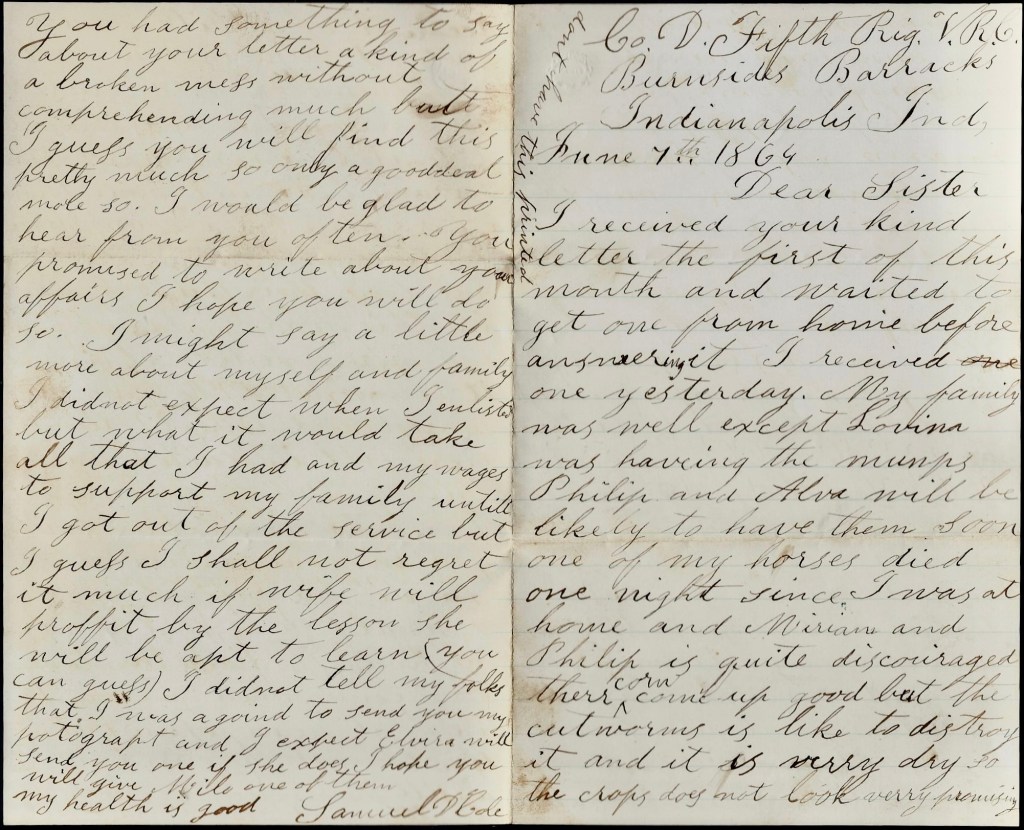 Co. D. Fifth Rig. V. R. C.
Burnsides Barracks
Indianapolis Ind,
June 7th 1864
Dear Sister
I received your kind
letter the first of this
month and waited to
get one from home before
answering it I received one
one yesterday. My family
was well except Lovina
was haveing the mumps
Philip and Alva will be
likely to have them soon
one of my horses died
one night since I was at
home and Miriam and
Philip is quite discouraged
there corn come up good but the
cutworms is like to distroy
it and it is verry dry so
the crops does not look verry promising
dont have this printed
You had something to say
about your letter a kind of
a broken mess without
comprehending much but
I guess you will find this
pretty much so only a good deal
mole so. I would be glad to
hear from you often. You
promised to write about your
affairs I hope you will do
so. I might say a little
more about myself and family
I didnot expect when I enlisted
but what it would take
all that I had and my wages
to support my family untill
I got out of the service but
I guess I shall not regret
it much if wife will
proffit by the lesson she
will be apt to learn (you
can guess) I didnot tell my folks
that I was agoind to send you my
potograpt and I expect Elvira will
send you one if she does I hope you
will give Milo one of them
my health is good Samuel D Cole